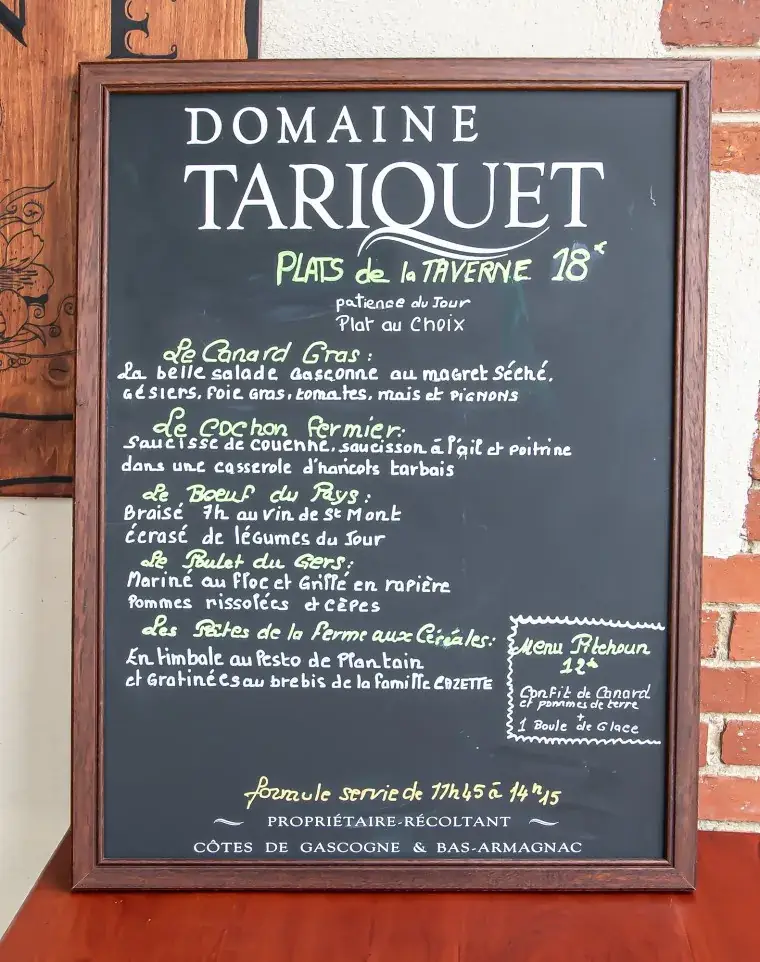 DOMAINE
TARIQUET
PLATS de la TAVERNE 18€
patience du Jour
Plat au Choix
Le Canard Gras :
La belle salade Gasconne au magret Séché,
Gésiers, foie gras, tomates, maïs et PIGNONS
Le Cochon fermier:
Saucisse de couenne, saucisson à l'ail et poitrine
dans une casserole d'haricots tarbais
Le Boeuf du Pays :
Braisé 7h au vin de St Mont
Écrasé de légumes du Jour
Le Poulet du Gers :
Mariné au floc et Grillé en rapière
Pommes rissolées et cèpes
Les Pâtes de la ferme aux Céréales :
En timbale au Pesto de Plantain
et Gratinées au brebis de la famille CAZETTE
Menu Pitchoun
12€
Confit de Canard
et pommes de terre
+
1 Boule de Glace
formule servie de 11h45 à 14h15
PROPRIÉTAIRE-RÉCOLTANT
CÔTES DE GASCOGNE & BAS-ARMAGNAC